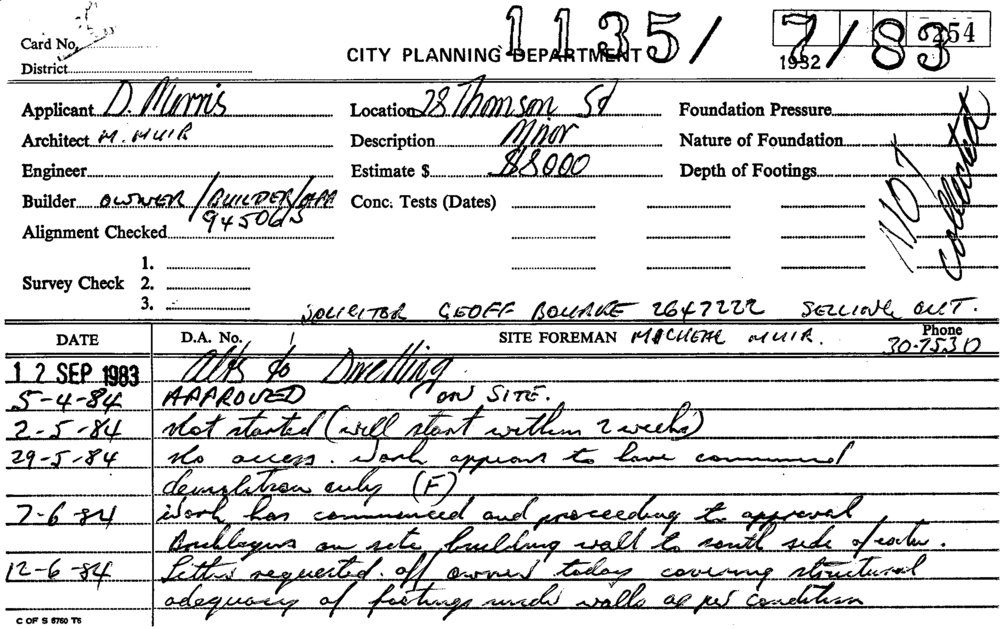 Card No.
District
CITY PLANNING DEPARTMENT
1135/
7/83
1932
254
Applicant D. Morris
Location 78 Thomson St
Foundation Pressure
Architect M. MUIR
Description Minor
Nature of Foundation
Engineer
Estimate $ $8000
Depth of Footings
NOT collected
Builder OWNER/BUILDER/APP
Conc. Tests (Dates)
945065
Alignment Checked
1.
Survey Check 2.
3.
SOLICITOR GEOFF BOURKE 2647222 SELLING OUT.
DATE D.A. No. SITE FOREMAN MICHEAL MUIR. Phone
30-7530
12 SEP 1983 Alts to Dwelling
5-4-84 APPROVED ON SITE.
2-5-84 Not started (will start within 2 weeks)
29-5-84 No access. Work appears to have commenced
demolition only (F)
7-6-84 Work has commenced and proceeding to approval
Bricklayers on site building wall to south side of
12-6-84 Letter requested off owner today covering structural
adequacy of footings under walls as per condition
C OF S 6760 T6